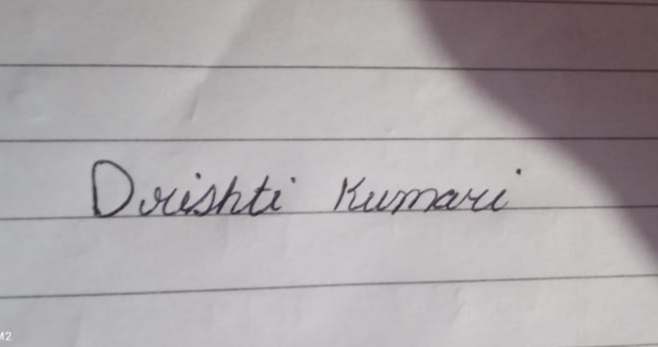 Drishti Kumari
M2